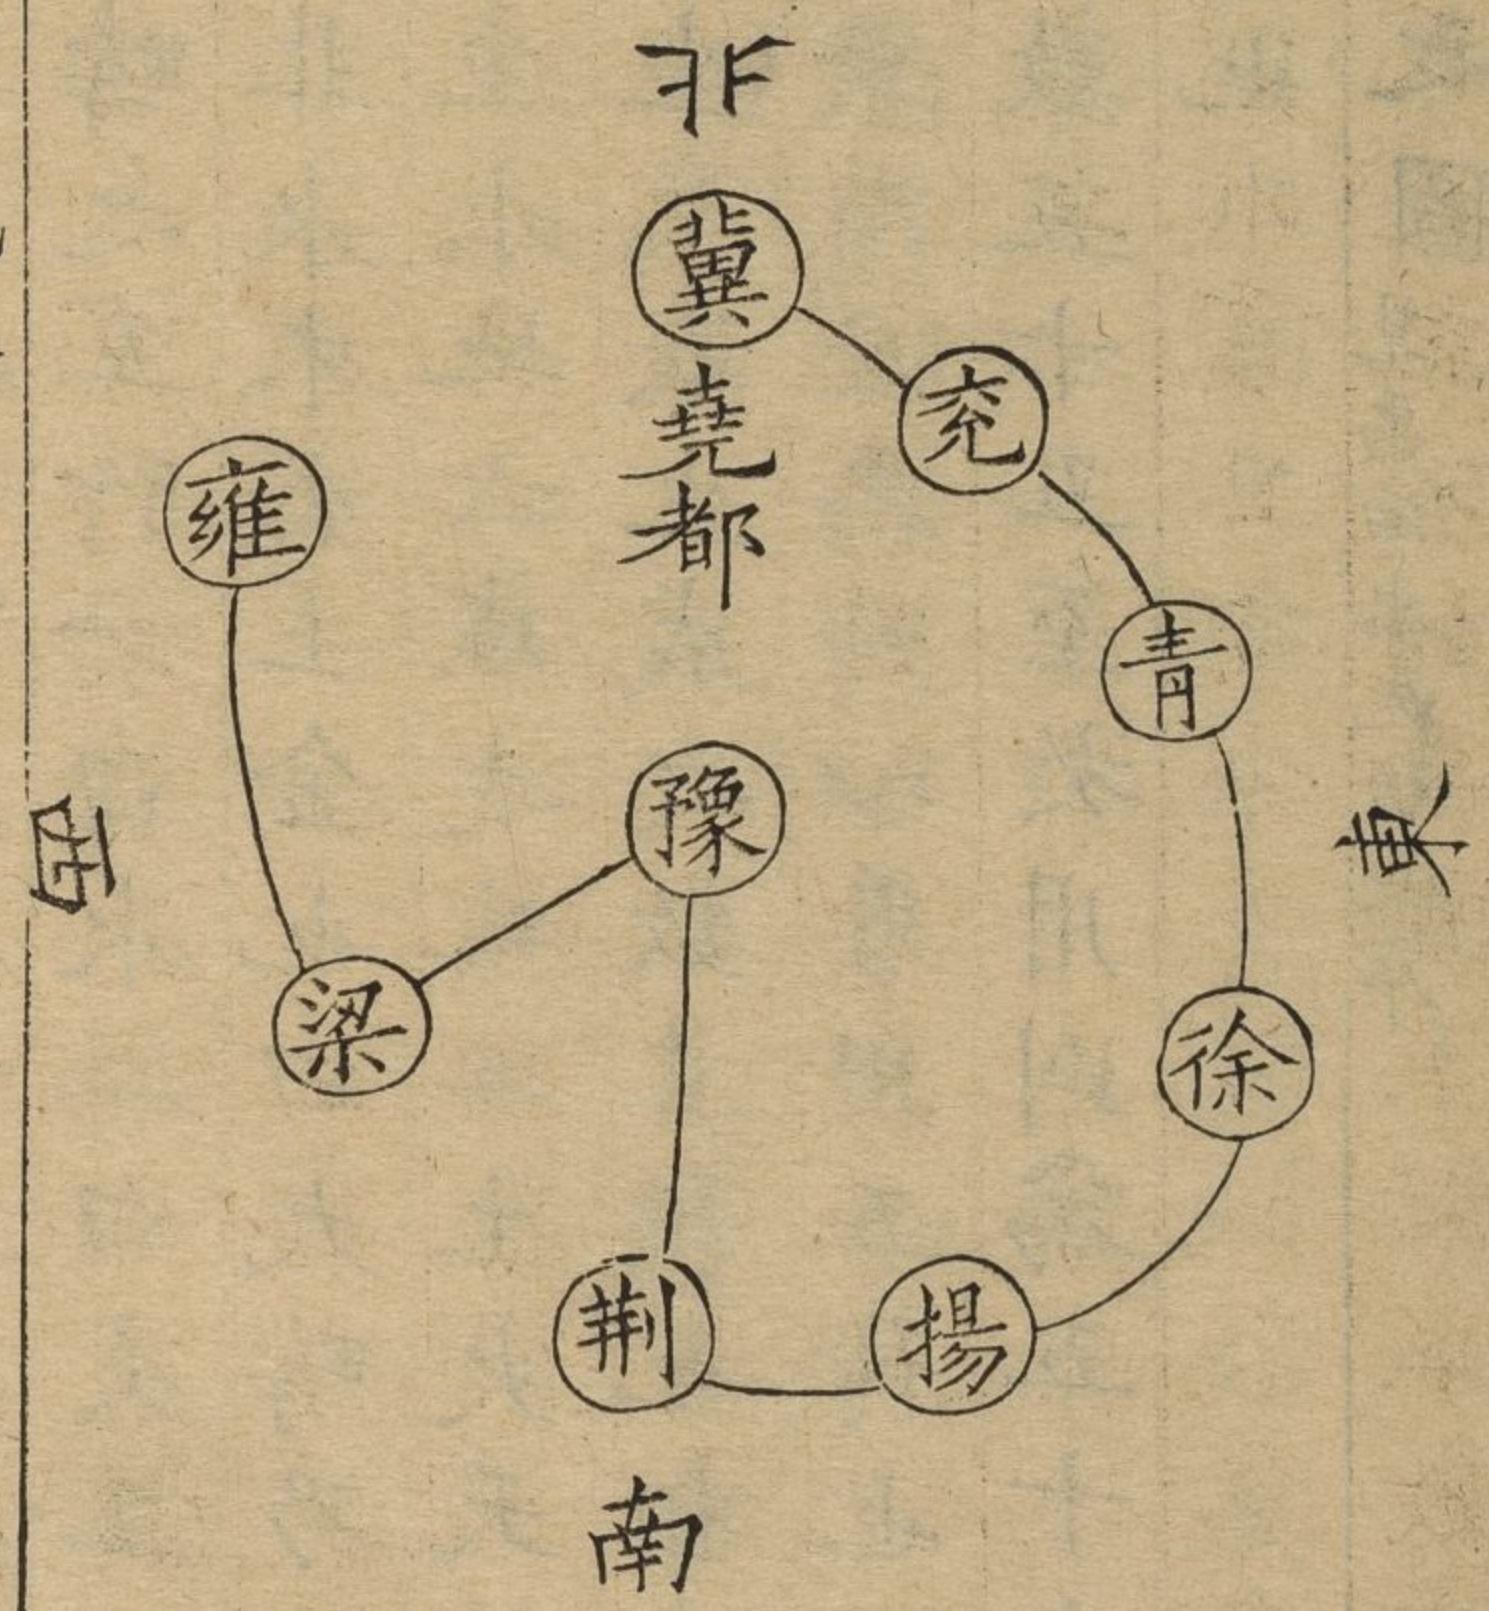 北
冀
堯都
兖
青
東
徐
揚
荆
南
豫
梁
雍
西